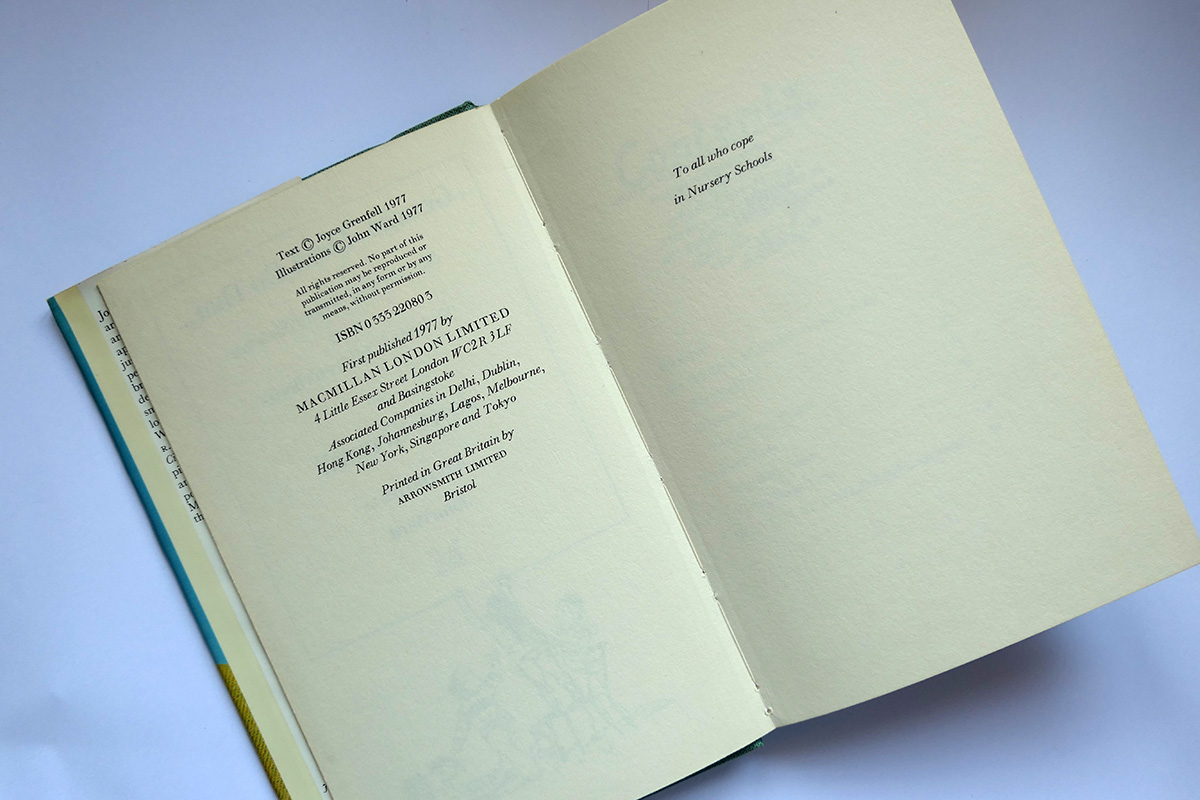 Text © Joyce Grenfell 1977
Illustrations © John Ward 1977
All rights reserved. No part of this
publication may be reproduced or
transmitted, in any form or by any
means, without permission.
ISBN 0 333 22080 3
First published 1977 by
MACMILLAN LONDON LIMITED
4 Little Essex Street London WC2R 3LF
and Basingstoke
Associated Companies in Delhi, Dublin,
Hong Kong, Johannesburg, Lagos, Melbourne,
New York, Singapore and Tokyo
Printed in Great Britain by
ARROWSMITH LIMITED
Bristol
To all who cope
in Nursery Schools